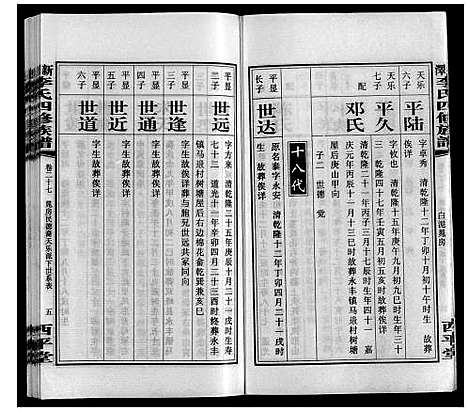 天乐
六子
平陆
字卓秀 清乾隆十二年丁卯十月初十午时生 故葬
俟详
天乐
七子
平久
字攸也 清乾隆十五年庚午九月初九巳时生年三十
三 乾隆四十七年壬寅五月初五亥时故葬俟详
配
邓氏
清乾隆二十一年丙子三月十七辰时生年四十一 嘉
庆元年丙辰十一月十三巳时故葬永丰镇马埌村树塘
屋后庚山甲向
子二 世德 觉
十八代
平显
长子
世达
原名泰字永安 清乾隆十二年丁卯二月初十戌时
生 故葬俟详
平显
二子
世远
字方来 清乾隆二十五年庚辰十月二十一戌时生寿
七十三 道光十一年辛卯四月二十三酉时终葬永丰
镇马埌村树塘屋后右边棉花畲乾巽兼亥巳
平显
三子
世逢
字 生故葬俟详葬与胞兄世远共冢同向
平显
四子
世通
字 生故葬俟详
平显
五子
世近
字 生故葬俟详
平显
六子
世道
字 生故葬俟详
李氏四修族谱
卷二十七
晃房民德裔天乐派下世系表
五
西平堂
李氏四修族谱
白泥晃房
西平堂